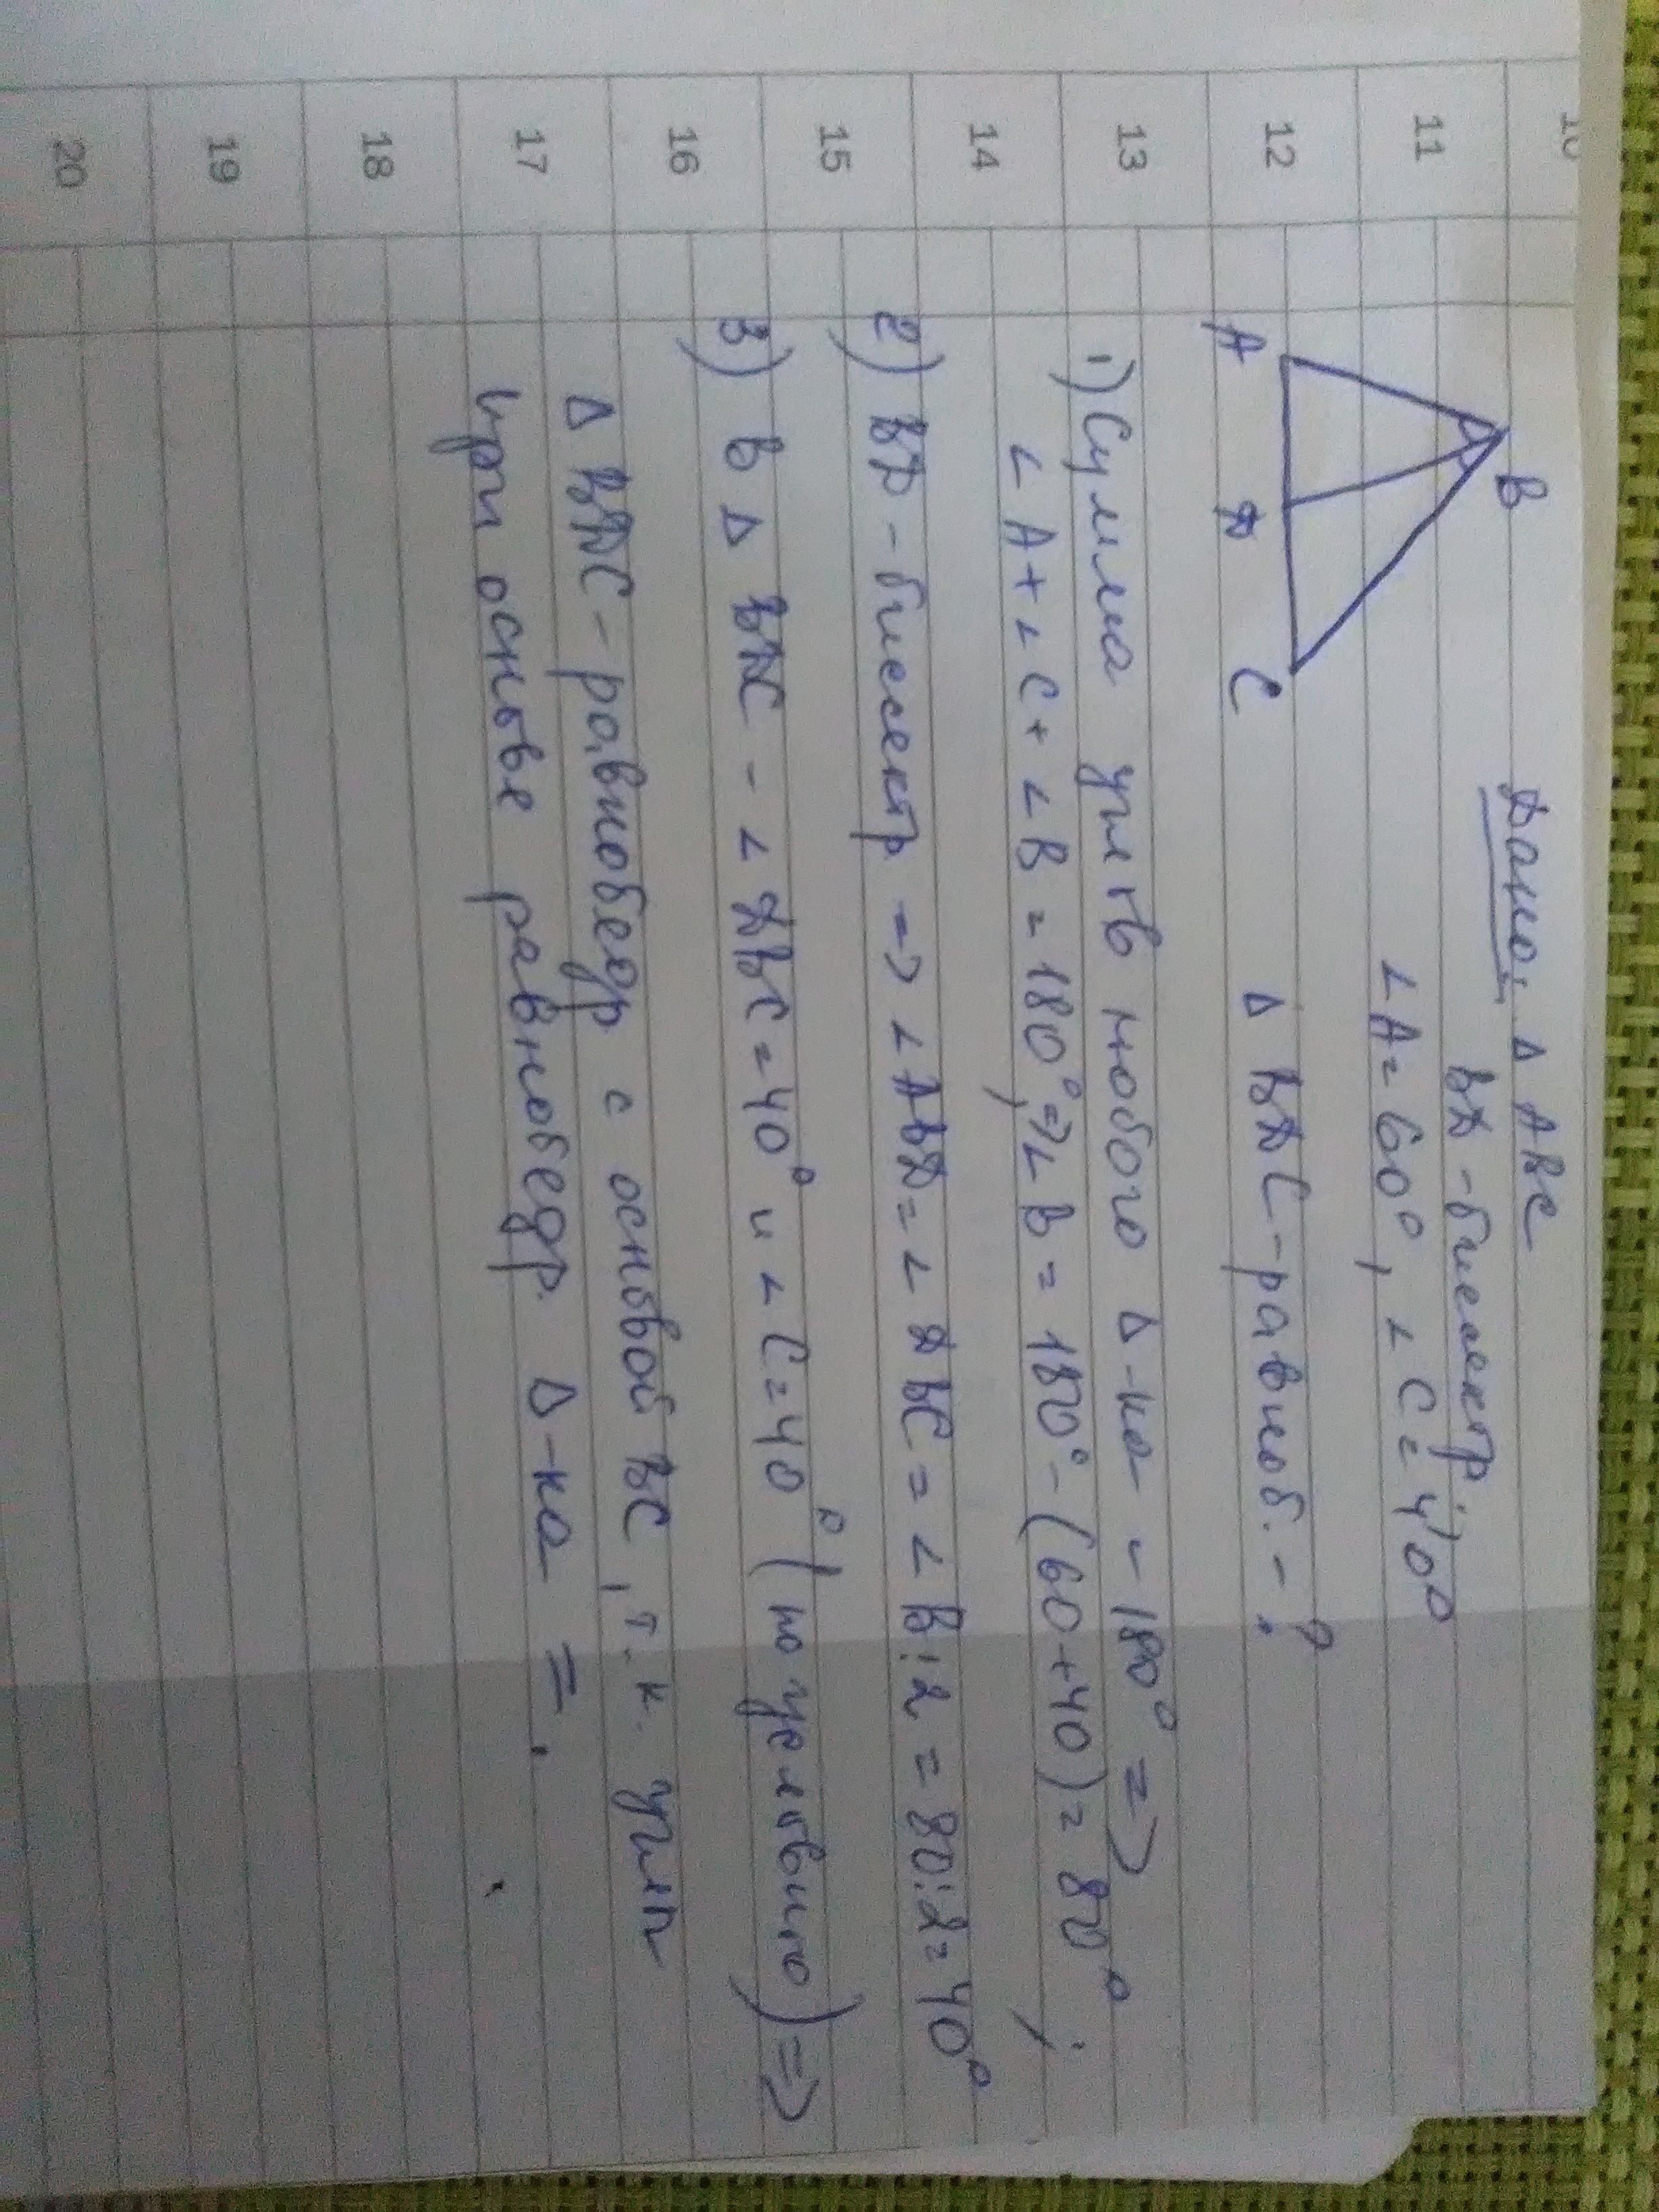 10
11
12
13
14
15
16
17
18
19
20
B
A
D
C
Дано: Δ ABC
BD - биссектр.
∠A = 60°, ∠C = 40°
Δ BDC - равноб. - ?
1) Сумма углов любого Δ-ка - 180° =>
∠A + ∠C + ∠B = 180°, => ∠B = 180° - (60 + 40) = 80°;
2) BD - биссектр => ∠ABD = ∠DBC = ∠B : 2 = 80 : 2 = 40°
3) В Δ BDC - ∠DBC = 40° и ∠C = 40° (по условию) =>
Δ BDC - равнобедр с основой BC, т.к. углы
при основе равнобедр. Δ-ка =.